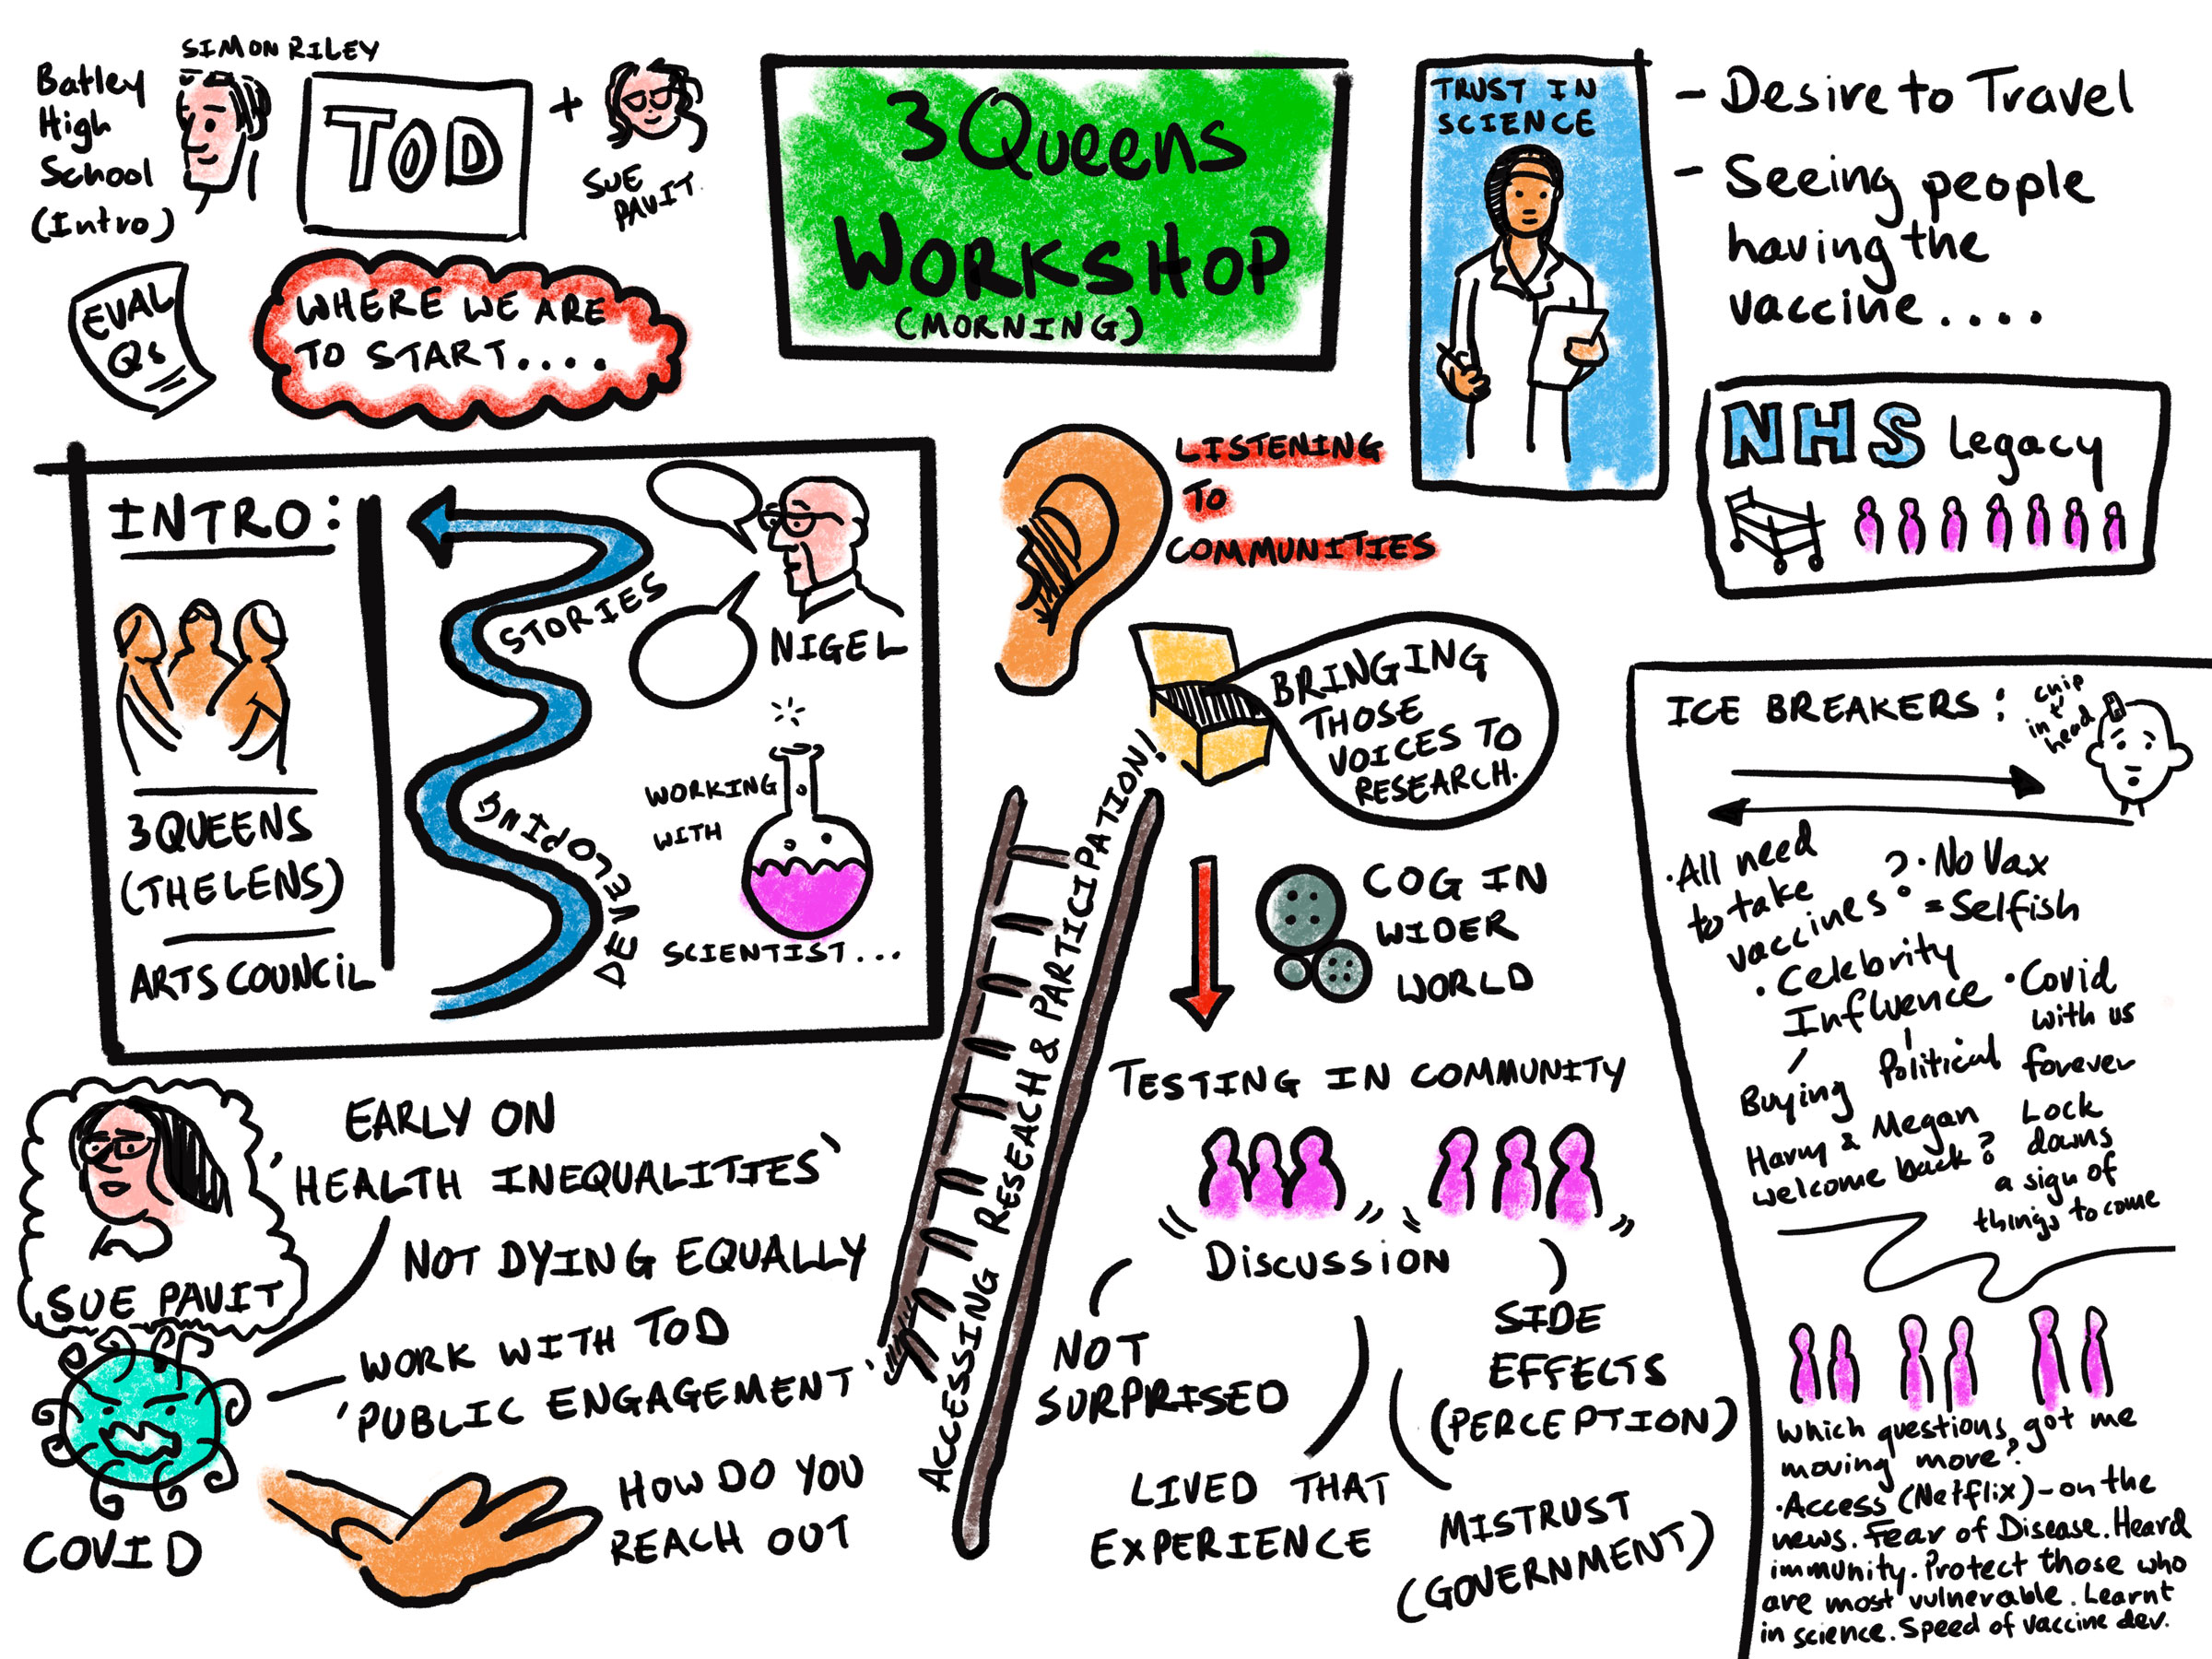 SIMON RILEY
Batley
High
School
(Intro)
TOD
+
SUE
PAVIT.
3 Queens
WORKSHOP
(MORNING)
TRUST IN
SCIENCE
- Desire to Travel
- Seeing people
having the
vaccine....
EVAL
Qs
WHERE WE ARE
TO START....
NHS Legacy
INTRO:
3 QUEENS
(THE LENS)
ARTS COUNCIL
STORIES
DEVELOPING
NIGEL
WORKING
WITH
SCIENTIST...
LISTENING
TO
COMMUNITIES
BRINGING
THOSE
VOICES TO
RESEARCH.
ACCESSING RESEACH & PARTICIPATION!
COG IN
WIDER
WORLD
TESTING IN COMMUNITY
DISCUSSION
NOT
SURPRISED
LIVED THAT
EXPERIENCE
SIDE
EFFECTS
(PERCEPTION)
MISTRUST
(GOVERNMENT)
SUE PAVIT
COVID
EARLY ON
'HEALTH INEQUALITIES'
NOT DYING EQUALLY
WORK WITH TOD
'PUBLIC ENGAGEMENT'
HOW DO YOU
REACH OUT
ICE BREAKERS:
chip
in t'
head
• All need
to take
vaccines?
• No Vax
= Selfish
• Celebrity
Influence
Buying
Political
Harry & Megan
welcome back?
• Covid
with us
forever
Lock
downs
a sign of
things to come
Which questions got me
moving more?
• Access (Netflix) - on the
news. Fear of Disease. Heard
immunity. Protect those who
are most vulnerable. Learnt
in science. Speed of vaccine dev.